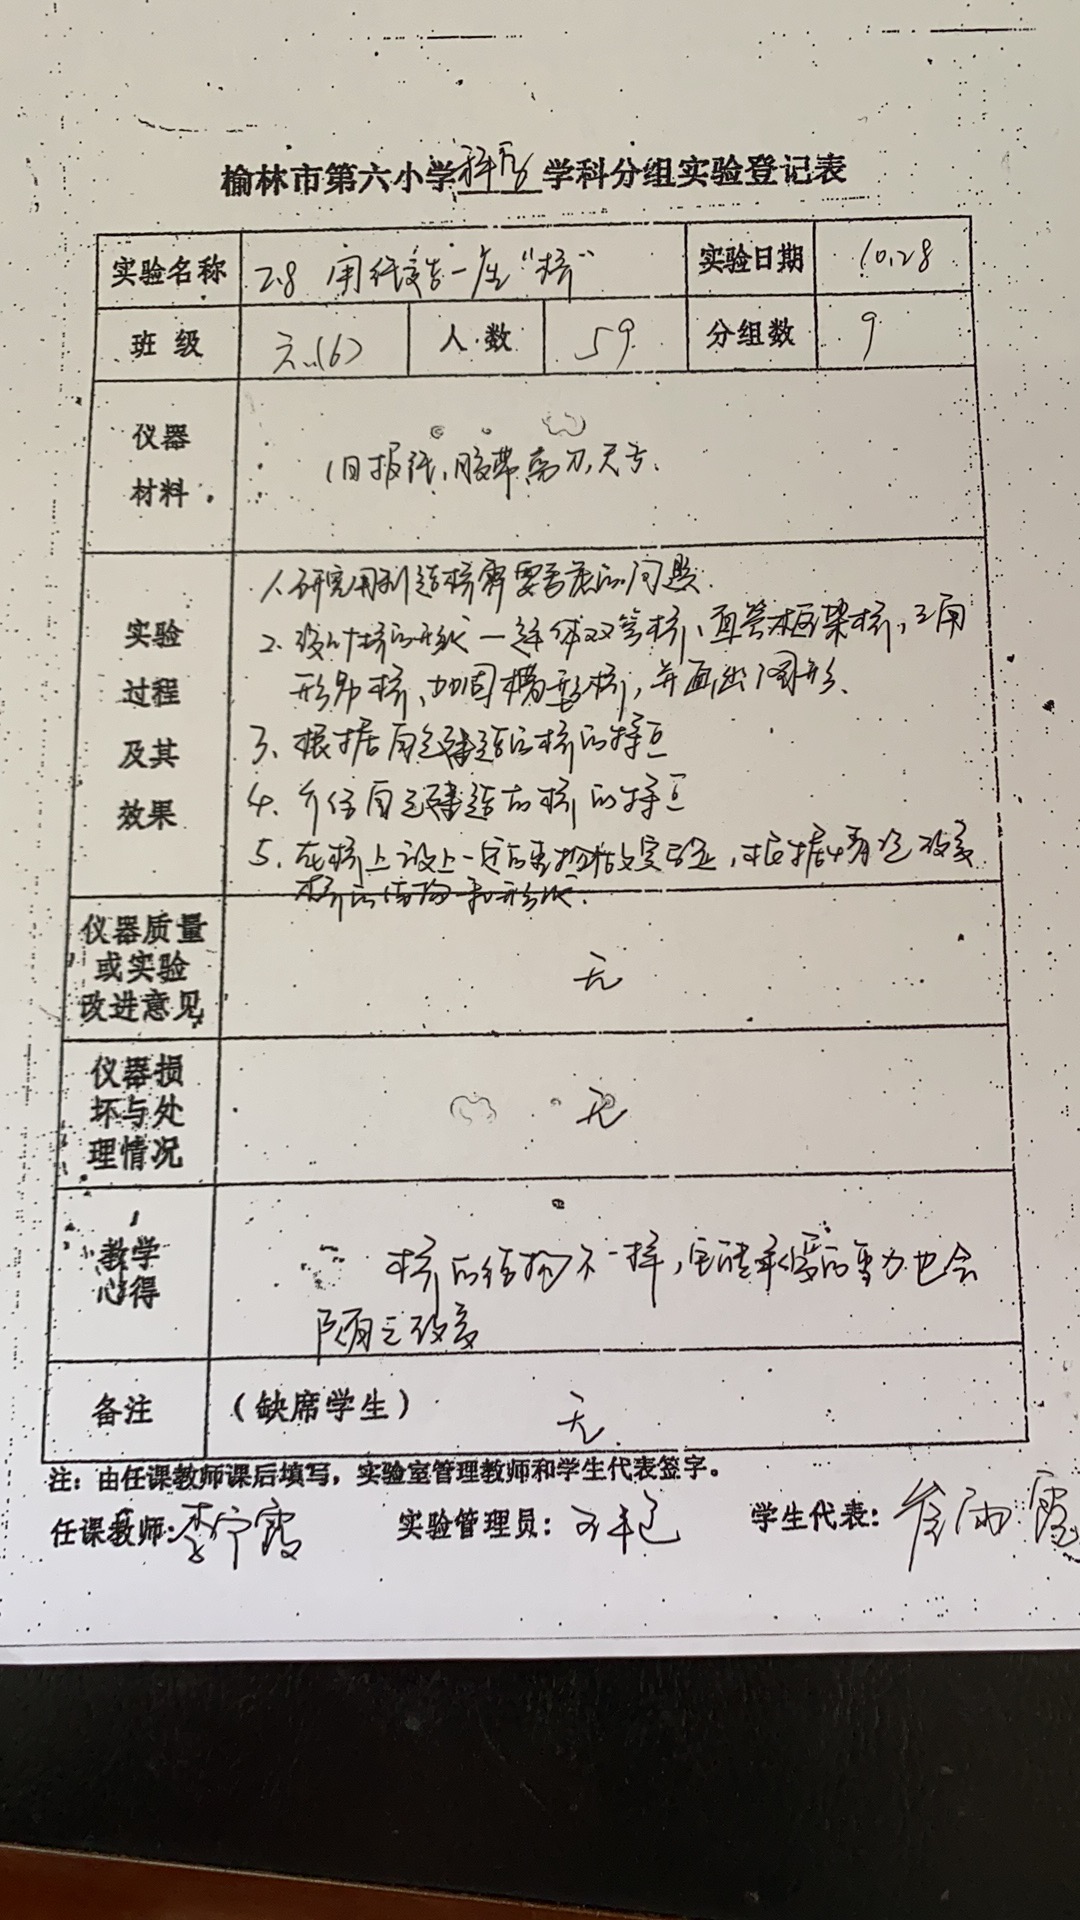 榆林市第六小学科学学科分组实验登记表
实验名称 2.8 用纸造一座“桥” 实验日期 10.28
班级 六(6) 人数 59 分组数 9
仪器材料 旧报纸、胶带、剪刀、尺子.
实验过程及其效果
1、研究用纸造桥需要考虑的问题.
2、设计桥的形状—连体双管桥、直管框架桥、三角
形架桥、加固槽型桥,并画出图形.
3、根据自己建造的桥的特点
4、介绍自己建造的桥的特点
5、在桥上放上一定的重物做实验,根据情况改变
桥的结构和形状.
仪器质量或实验改进意见 无
仪器损坏与处理情况 无
教学心得 桥的结构不一样,它能承受的重力也会
随之改变
备注 (缺席学生) 无
注:由任课教师课后填写,实验室管理教师和学生代表签字。
任课教师:李宁霞 实验管理员: 学生代表:雨霞